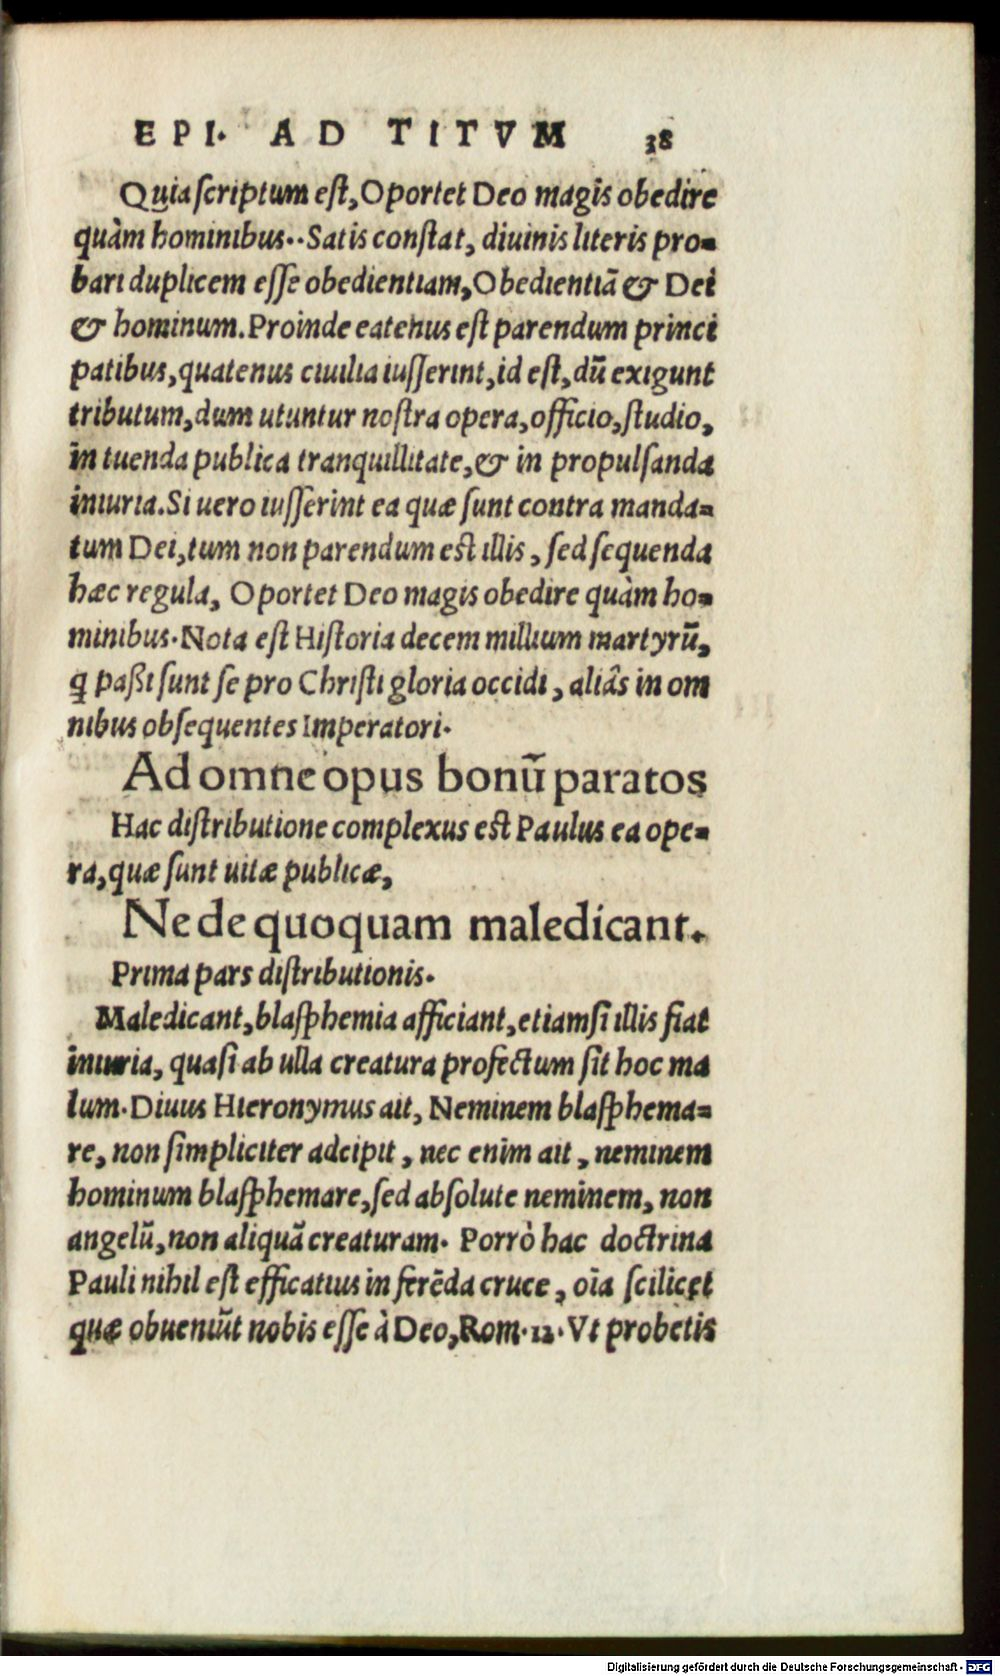 EPI. AD TITVM 38
Quia scriptum est, Oportet Deo magis obedire
quàm hominibus.. Satis constat, diuinis literis pro-
bari duplicem esse obedientiam, Obedientiā & Dei
& hominum. Proinde eatenus est parendum princi
patibus, quatenus ciuilia iusserint, id est, dū exigunt
tributum, dum utuntur nostra opera, officio, studio,
in tuenda publica tranquillitate, & in propulsanda
iniuria. Si uero iusserint ea quæ sunt contra manda-
tum Dei, tum non parendum est illis, sed sequenda
hæc regula, Oportet Deo magis obedire quàm ho-
minibus. Nota est Historia decem millium martyrū,
q̄ paßi sunt se pro Christi gloria occidi, aliâs in om
nibus obsequentes Imperatori.
Ad omne opus bonū paratos
Hac distributione complexus est Paulus ea ope-
ra, quæ sunt uitæ publicæ,
Ne de quoquam maledicant.
Prima pars distributionis.
Maledicant, blasphemia afficiant, etiamsi illis fiat
iniuria, quasi ab ulla creatura profectum sit hoc ma
lum. Diuus Hieronymus ait, Neminem blasphema-
re, non simpliciter adcipit, nec enim ait, neminem
hominum blasphemare, sed absolute neminem, non
angelū, non aliquā creaturam. Porrò hac doctrina
Pauli nihil est efficatius in ferēda cruce, oīa scilicet
quæ obueniūt nobis esse à Deo, Rom. 12. Vt probetis
Digitalisierung gefördert durch die Deutsche Forschungsgemeinschaft - DFG